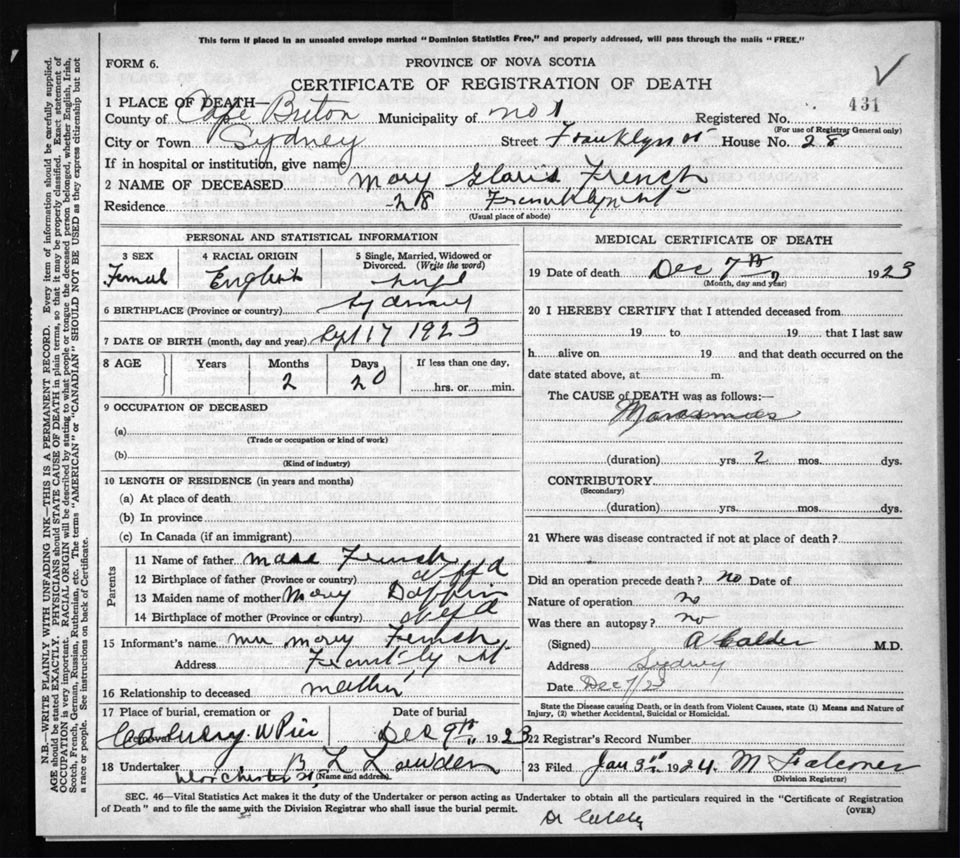 This form if placed in an unsealed envelope marked "Dominion Statistics Free," and properly addressed, will pass through the mails "FREE."
FORM 6.
PROVINCE OF NOVA SCOTIA
CERTIFICATE OF REGISTRATION OF DEATH
1 PLACE OF DEATH—
County of Cape Breton Municipality of no 1 Registered No. 431
(For use of Registrar General only)
City or Town Sydney Street Franklyn st House No. 28
If in hospital or institution, give name
2 NAME OF DECEASED Mary Gloris French
Residence 28 Franklyn st
(Usual place of abode)
PERSONAL AND STATISTICAL INFORMATION
3 SEX 4 RACIAL ORIGIN 5 Single, Married, Widowed or Divorced. (Write the word)
Femal English singl
6 BIRTHPLACE (Province or country) Sydney
7 DATE OF BIRTH (month, day and year) Sept 17 1923
8 AGE Years Months Days If less than one day,
2 20 hrs. or min.
9 OCCUPATION OF DECEASED
(a)
(Trade or occupation or kind of work)
(b)
(Kind of industry)
10 LENGTH OF RESIDENCE (in years and months)
(a) At place of death
(b) In province
(c) In Canada (if an immigrant)
Parents
11 Name of father French
12 Birthplace of father (Province or country) nfld
13 Maiden name of mother Mary
14 Birthplace of mother (Province or country) nfld
15 Informant's name mrs mary French
Address Frankly st
16 Relationship to deceased mother
17 Place of burial, cremation or removal Date of burial
W Pier Dec 9th 1923
18 Undertaker B L Lowden
(Name and address)
Dorchester st
MEDICAL CERTIFICATE OF DEATH
19 Date of death Dec 7th 1923
(Month, day and year)
20 I HEREBY CERTIFY that I attended deceased from
19 to 19 that I last saw
h alive on 19 and that death occurred on the
date stated above, at m.
The CAUSE of DEATH was as follows:—
Marasmus
(duration) yrs. 2 mos. dys.
CONTRIBUTORY
(Secondary)
(duration) yrs. mos. dys.
21 Where was disease contracted if not at place of death?
Did an operation precede death? no Date of
Nature of operation no
Was there an autopsy? no
(Signed) A Calder M.D.
Address Sydney
Date Dec 7/23
State the Disease causing Death, or in death from Violent Causes, state (1) Means and Nature of
Injury, (2) whether Accidental, Suicidal or Homicidal.
22 Registrar's Record Number
23 Filed Jan 3rd 1924. M Falconer
(Division Registrar)
SEC. 46—Vital Statistics Act makes it the duty of the Undertaker or person acting as Undertaker to obtain all the particulars required in the "Certificate of Registration
of Death" and to file the same with the Division Registrar who shall issue the burial permit.
(OVER)
N.B.—WRITE PLAINLY WITH UNFADING INK—THIS IS A PERMANENT RECORD. Every item of information should be carefully supplied.
AGE should be stated EXACTLY. PHYSICIANS should STATE CAUSE OF DEATH in plain terms, so that it may be properly classified. Exact statement of
OCCUPATION is very important. RACIAL ORIGIN will be described by stating to what people or tongue the deceased person belonged, whether English, Irish,
Scotch, French, German, Russian, Ruthenian, etc. The terms "AMERICAN" or "CANADIAN" SHOULD NOT BE USED as they express citizenship but not
a race or people. See instructions on back of Certificate.